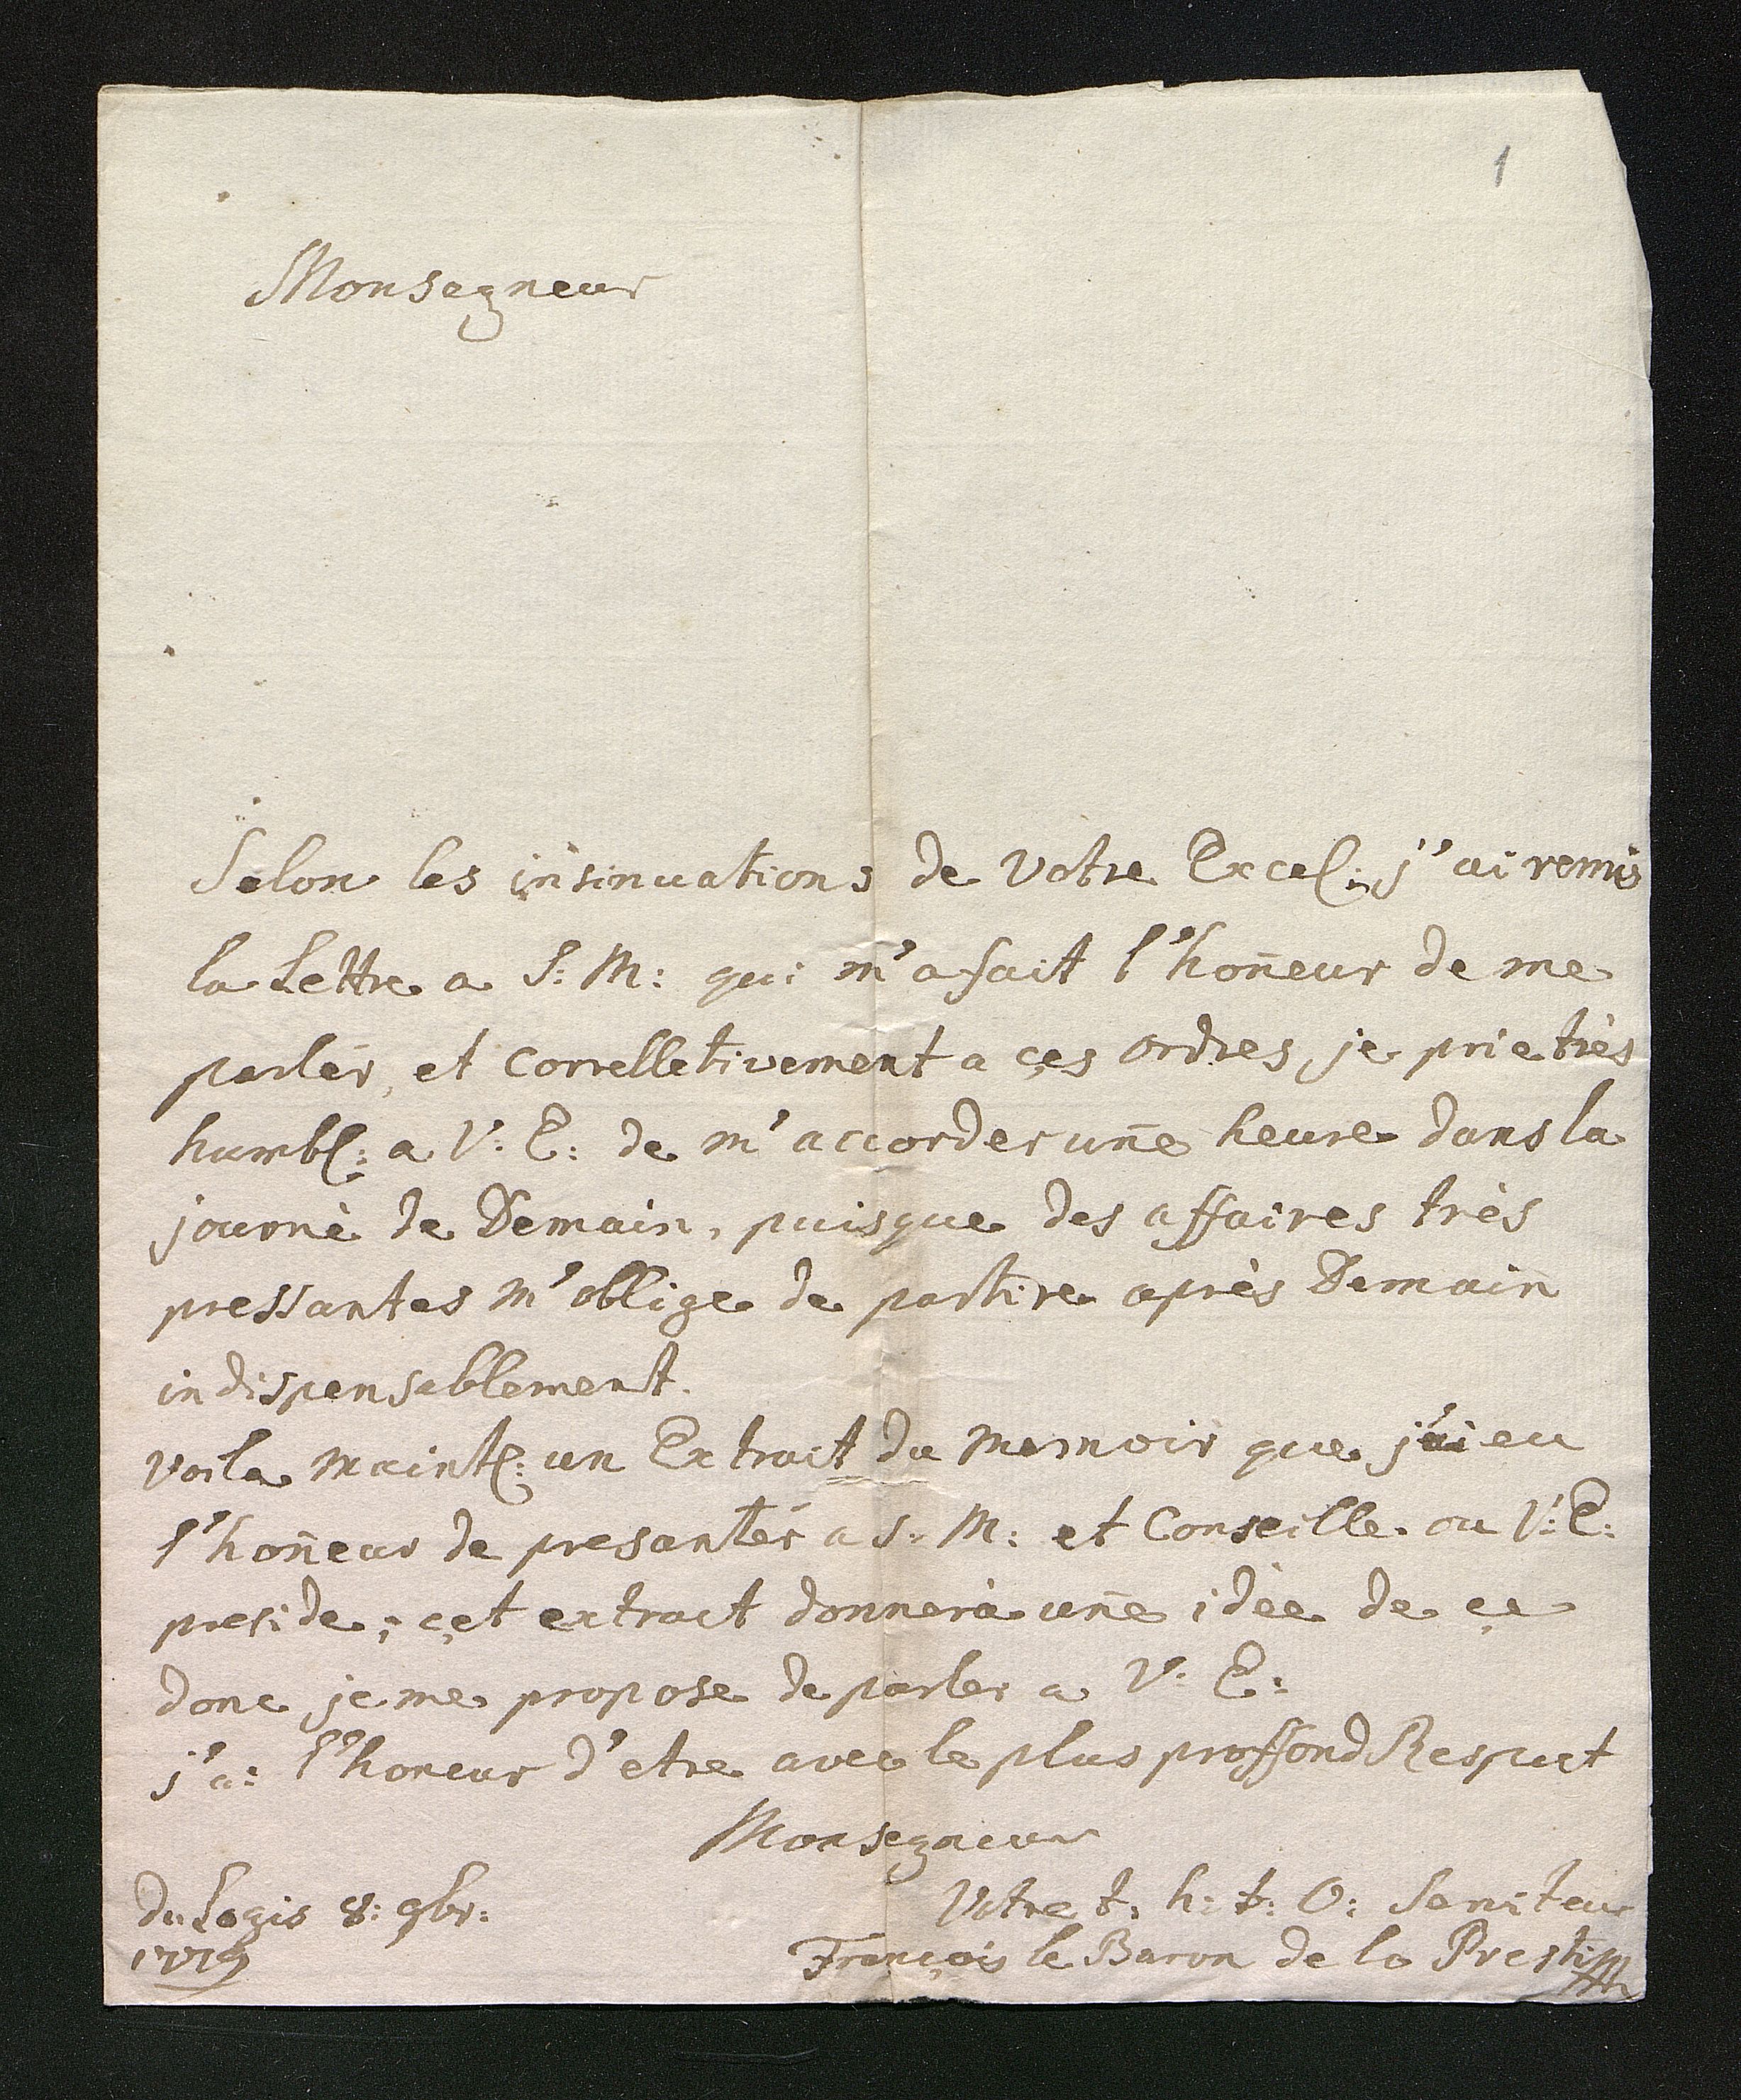 1
Monsegneur
Selon les insinuations de Votre Excel: j'ai remis
la Lettre a S: M: qui m'a fait l'hoñeur de me
parlér, et Correlletivement a çes ordres, je prie très
humbl: a V: E: de m'accorder uñe heure dans la
journè de Demain, puisque des affaires très
pressantes m'obblige de partire après Demain
indispensablement.
voila maint: un Extrait du Memoir que j'ai eu
l'hoñeur de presantér a S: M: et Conseille ou V: E:
preside; çet extrait donnerà uñe idèe de çe
donc je me propose de parler a V: E:
j'ai l'honeur d'etre avec le plus proffond Respect
Monsegneur
Du Logis 8: 9br:
Votre t: h: t: O: Serviteur
1779
François le Baron de la Presti